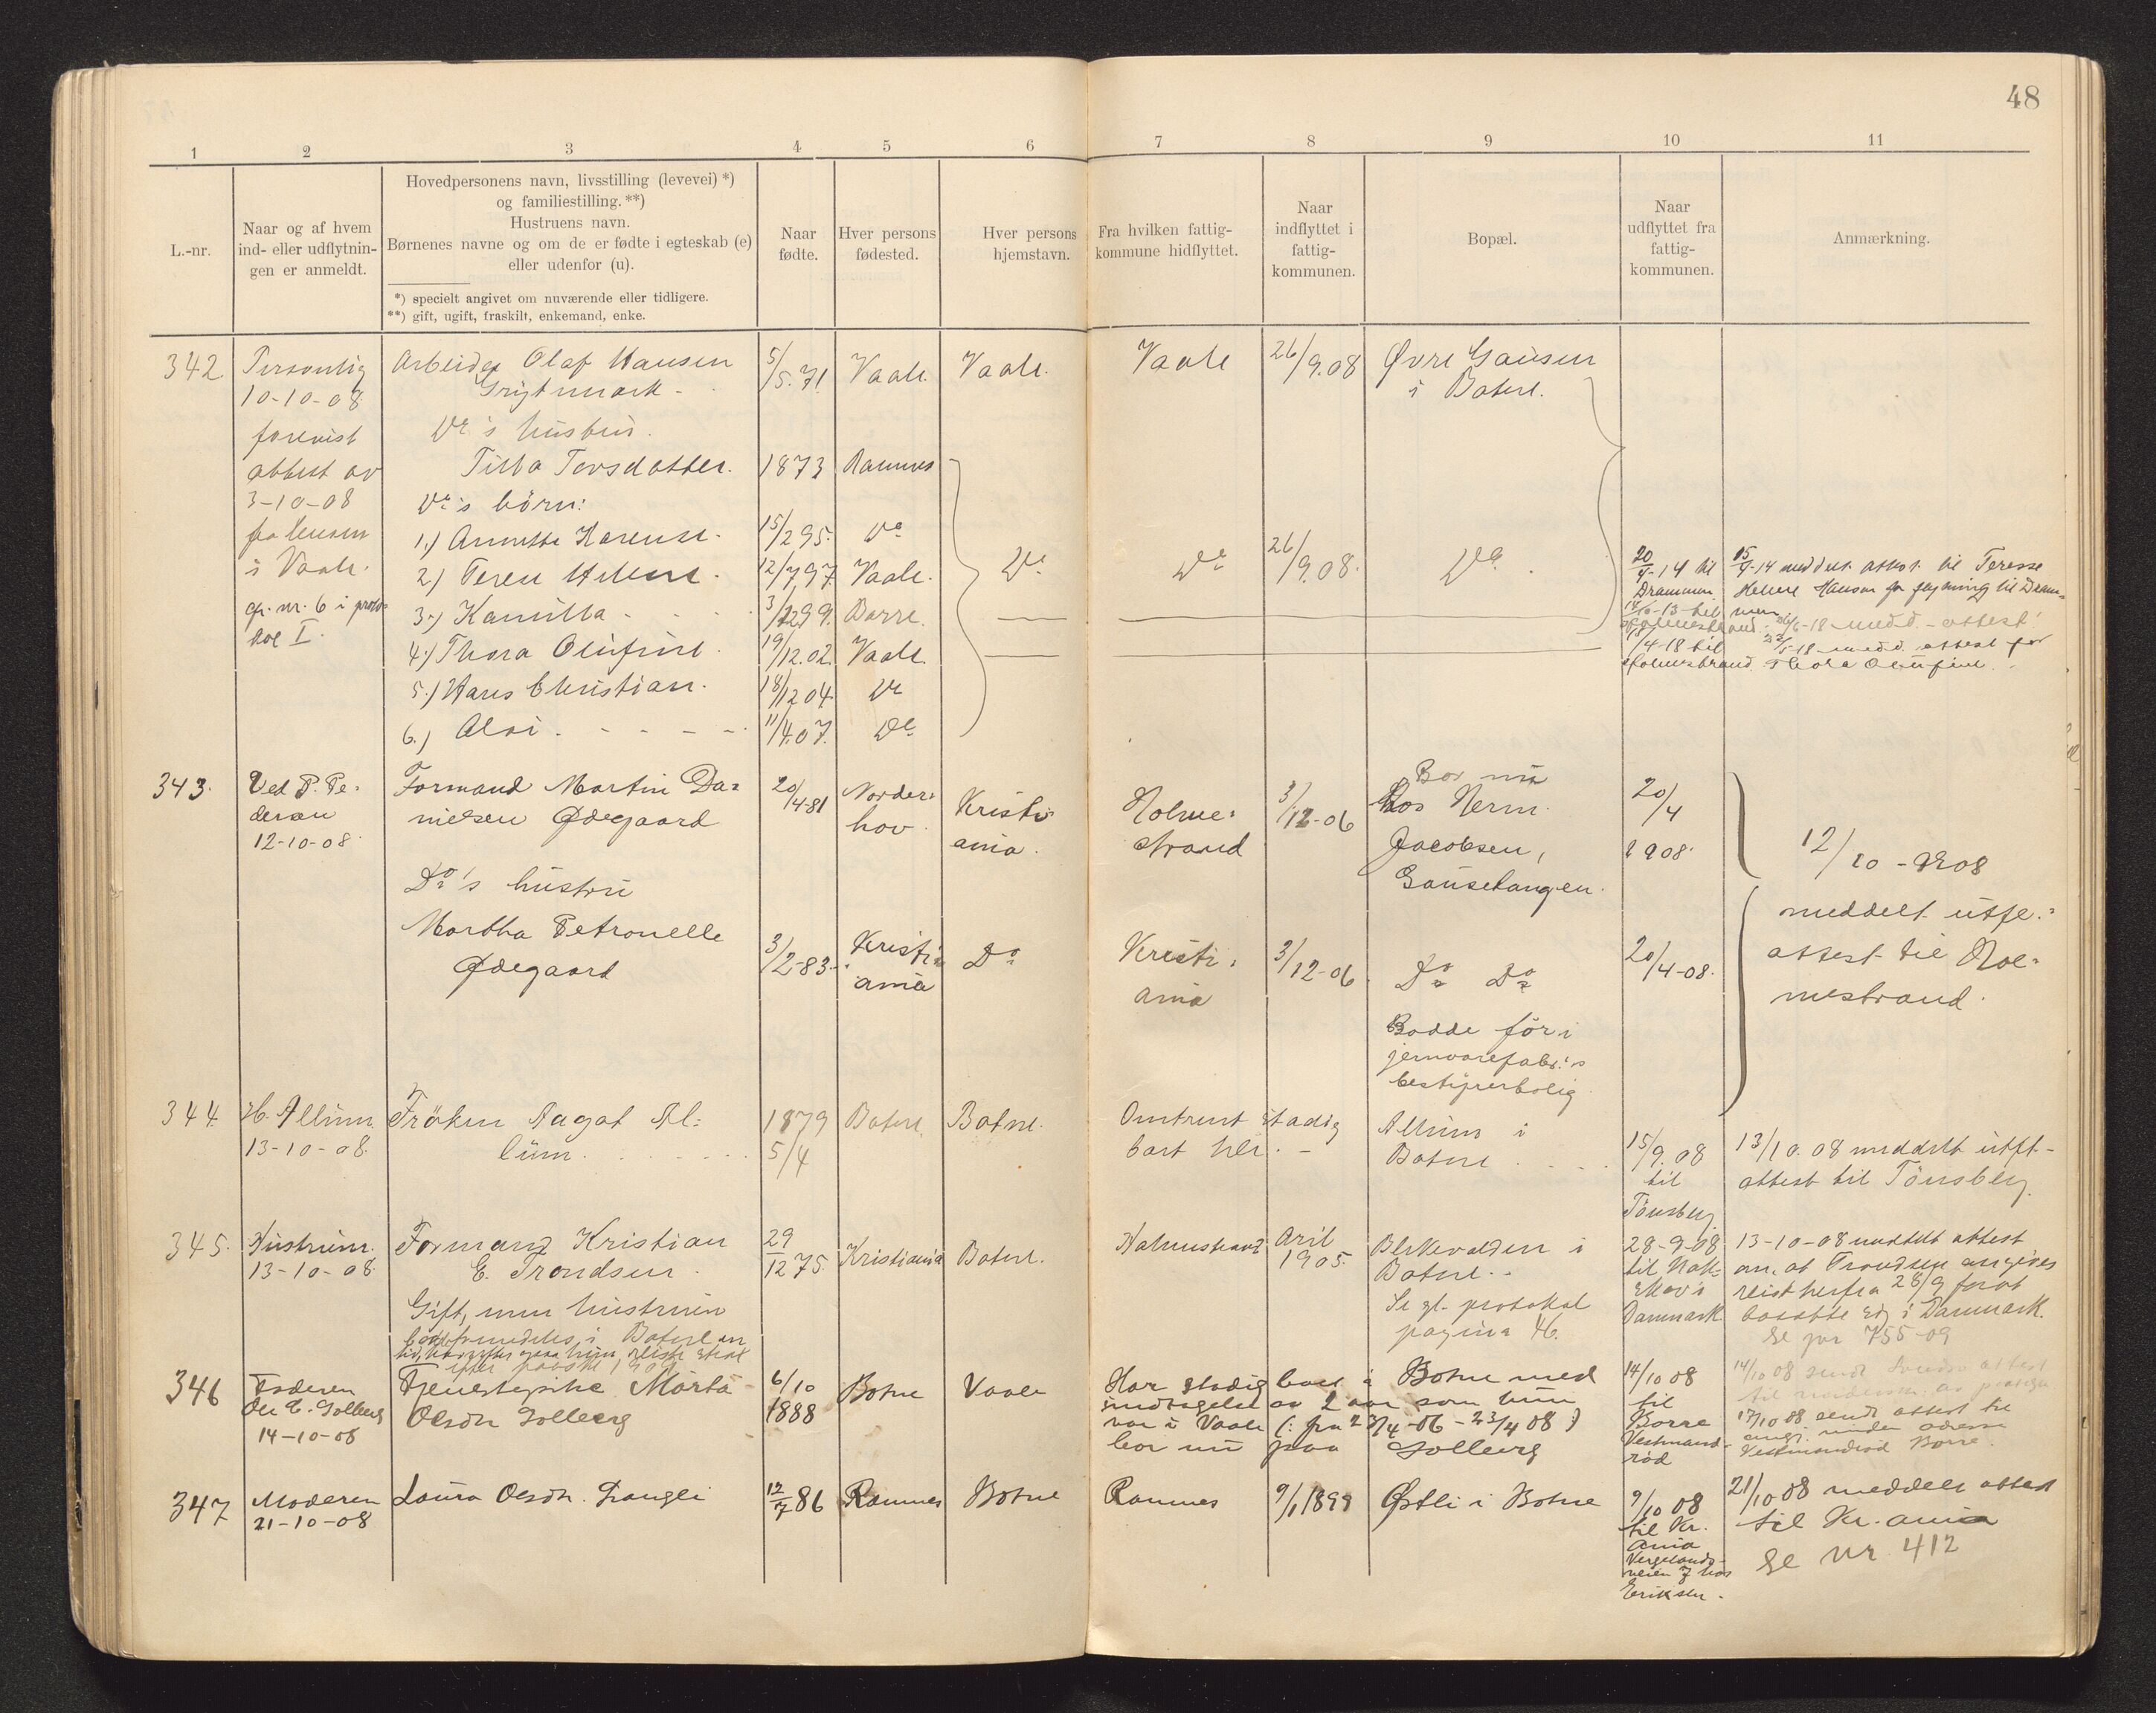 48
1 2 3 4 5 6 7 8 9 10 11
L.-nr.
Naar og af hvem
ind- eller udflytnin-
gen er anmeldt.
Hovedpersonens navn, livsstilling (levevei) *)
og familiestilling. **)
Hustruens navn.
Børnenes navne og om de er fødte i egteskab (e)
eller udenfor (u).
*) specielt angivet om nuværende eller tidligere.
**) gift, ugift, fraskilt, enkemand, enke.
Naar
fødte.
Hver persons
fødested.
Hver persons
hjemstavn.
Fra hvilken fattig-
kommune hidflyttet.
Naar
indflyttet i
fattig-
kommunen.
Bopæl.
Naar
udflyttet fra
fattig-
kommunen.
Anmærkning.
342.
Personlig
10-10-08
forevist
attest av
3-10-08
fra lensm
i Vaale.
gr. nr. 6 i proto-
kol I.
Arbeider Olaf Hansen
Do's hustru.
Tilla Torsdatter.
Do's børn:
1.) Annette Karense.
2.) Terese Helene.
3.) Kamilla
4.) Thora Olufine.
5.) Hans Christian.
6.) Alvi
5/5.71
1873
15/2 95.
12/7.97.
3/12 99.
19/12.02.
18/12 04.
11/4.07.
Vaale.
Ramnes
Do
Vaale.
Borre.
Vaale.
Do
Do
Vaale.
Do
Vaale
Do
26/9.08
26/9.08.
Øvre Gausen
i Botne.
Do
20/4-14 til
Drammen.
14/10-13 til
Holmestrand
/4-18 til
Holmestrand
15/4-14 meddelt attest til Terese
Helene Hansen for flytning til Dram-
men
26/6-18 medd. attest
23/5-18 medd. attest for
Thora Olufine
343.
Ved P. Pe-
dersen
12-10-08.
Formand Martin Da-
nielsen Ødegaard
Do's hustru
Martha Petronelle
Ødegaard
20/4-81
3/2-83.
Norder-
hov.
Kristi-
ania
Kristi-
ania.
Do
Holme-
strand
Kristi-
ania
3/12-06
3/12-06.
Bor nu
hos Herm.
Jacobsen,
Gausetangen.
Do Do
Bodde før i
jernvarefabr.'s
bestyrerbolig
20/4
1908.
20/4-08.
12/10-1908
meddelt utfl.-
attest til Hol-
mestrand.
344.
H. Allum
13-10-08.
Frøken Aagot Al-
lum.
1879
5/4
Botne
Botne.
Omtrent stadig
bort her.
Allum i
Botne
15/9.08
til
Tønsberg
13/10.08 meddelt utfl-
attest til Tønsberg.
345.
Hustruen.
13-10-08.
Formand Kristian
E. Trondsen.
Gift, men hustruen
29
12 75.
Kristiania
Botne.
Holmestrand
Aril
1905.
Blekevolden i
Botne.
Se gl. protokol
pagina 46.
28-9-08
til Nak-
skov i
Danmark
13-10-08 meddelt attest
om, at Trondsen angives
reist herfra 28/9 forat
bosætte sig i Danmark.
Se 755-09
346
Faderen
Ole E. Solberg
14-10-08
Tjenestepike Märta
Olsdtr Solberg
6/10
1888
Botne
Vaale
Har stadig boet i Botne med
undtagelse av 2 aar som hun
var i Vaale (: fra 23/4-06 - 23/4 08 :)
bor nu paa Solberg
14/10 08
til
Borre
Vestmand-
rød
14/10 08 sendt attest
17/10 08 sendt attest til
angj. under adresse
Vestmandrød Borre.
347
Moderen
21-10-08
Laura Olsdtr. Langeli
12/7 86
Ramnes
Botne
Ramnes
9/1 1899
Østli i Botne
9/10 08
til Kr.
ania
Vergelands-
veien 7 hos
Eriksen.
21/10 08 meddelt attest
til Kr.ania
Se nr 412